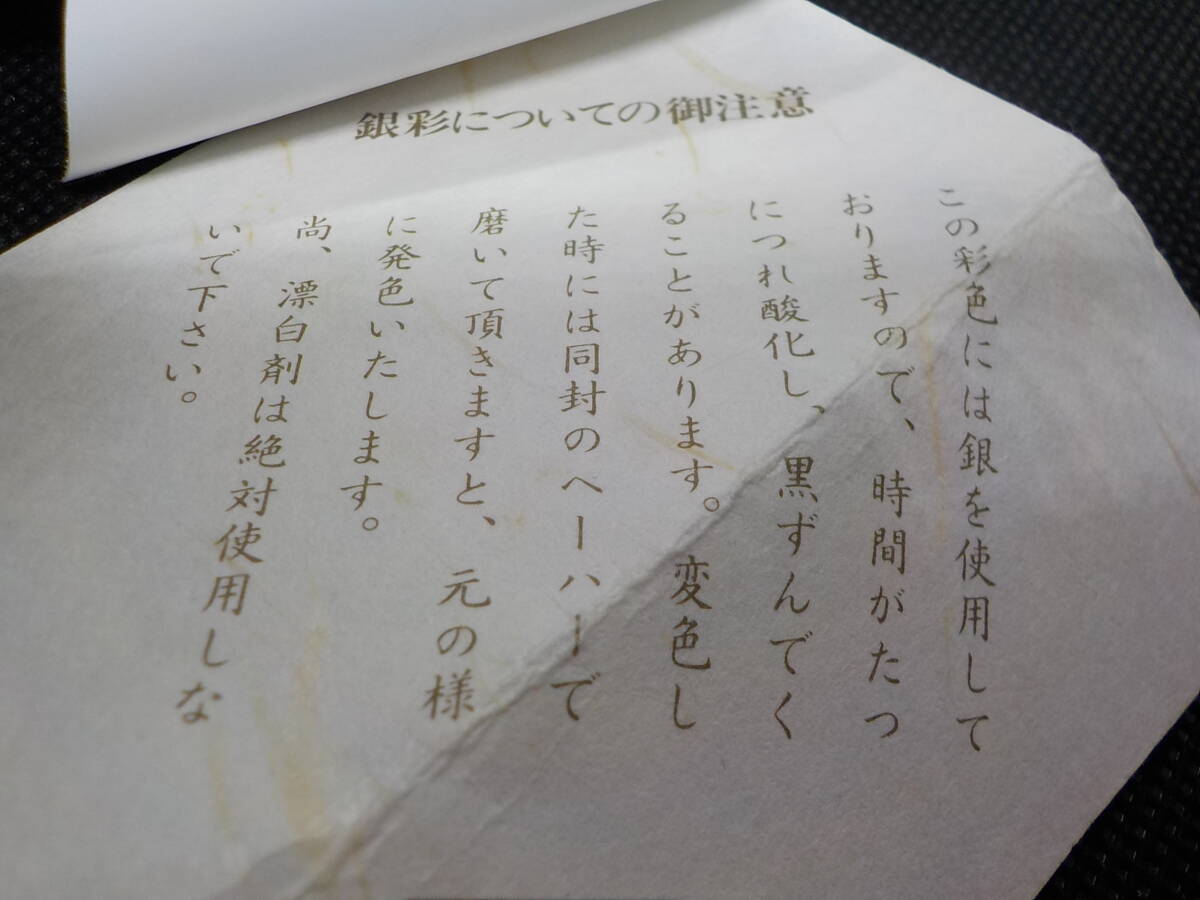 銀彩についての御注意
この彩色には銀を使用して
おりますので、時間がたつ
につれ酸化し、黒ずんでく
ることがあります。変色し
た時には同封のペーパーで
磨いて頂きますと、元の様
に発色いたします。
尚、漂白剤は絶対使用しな
いで下さい。